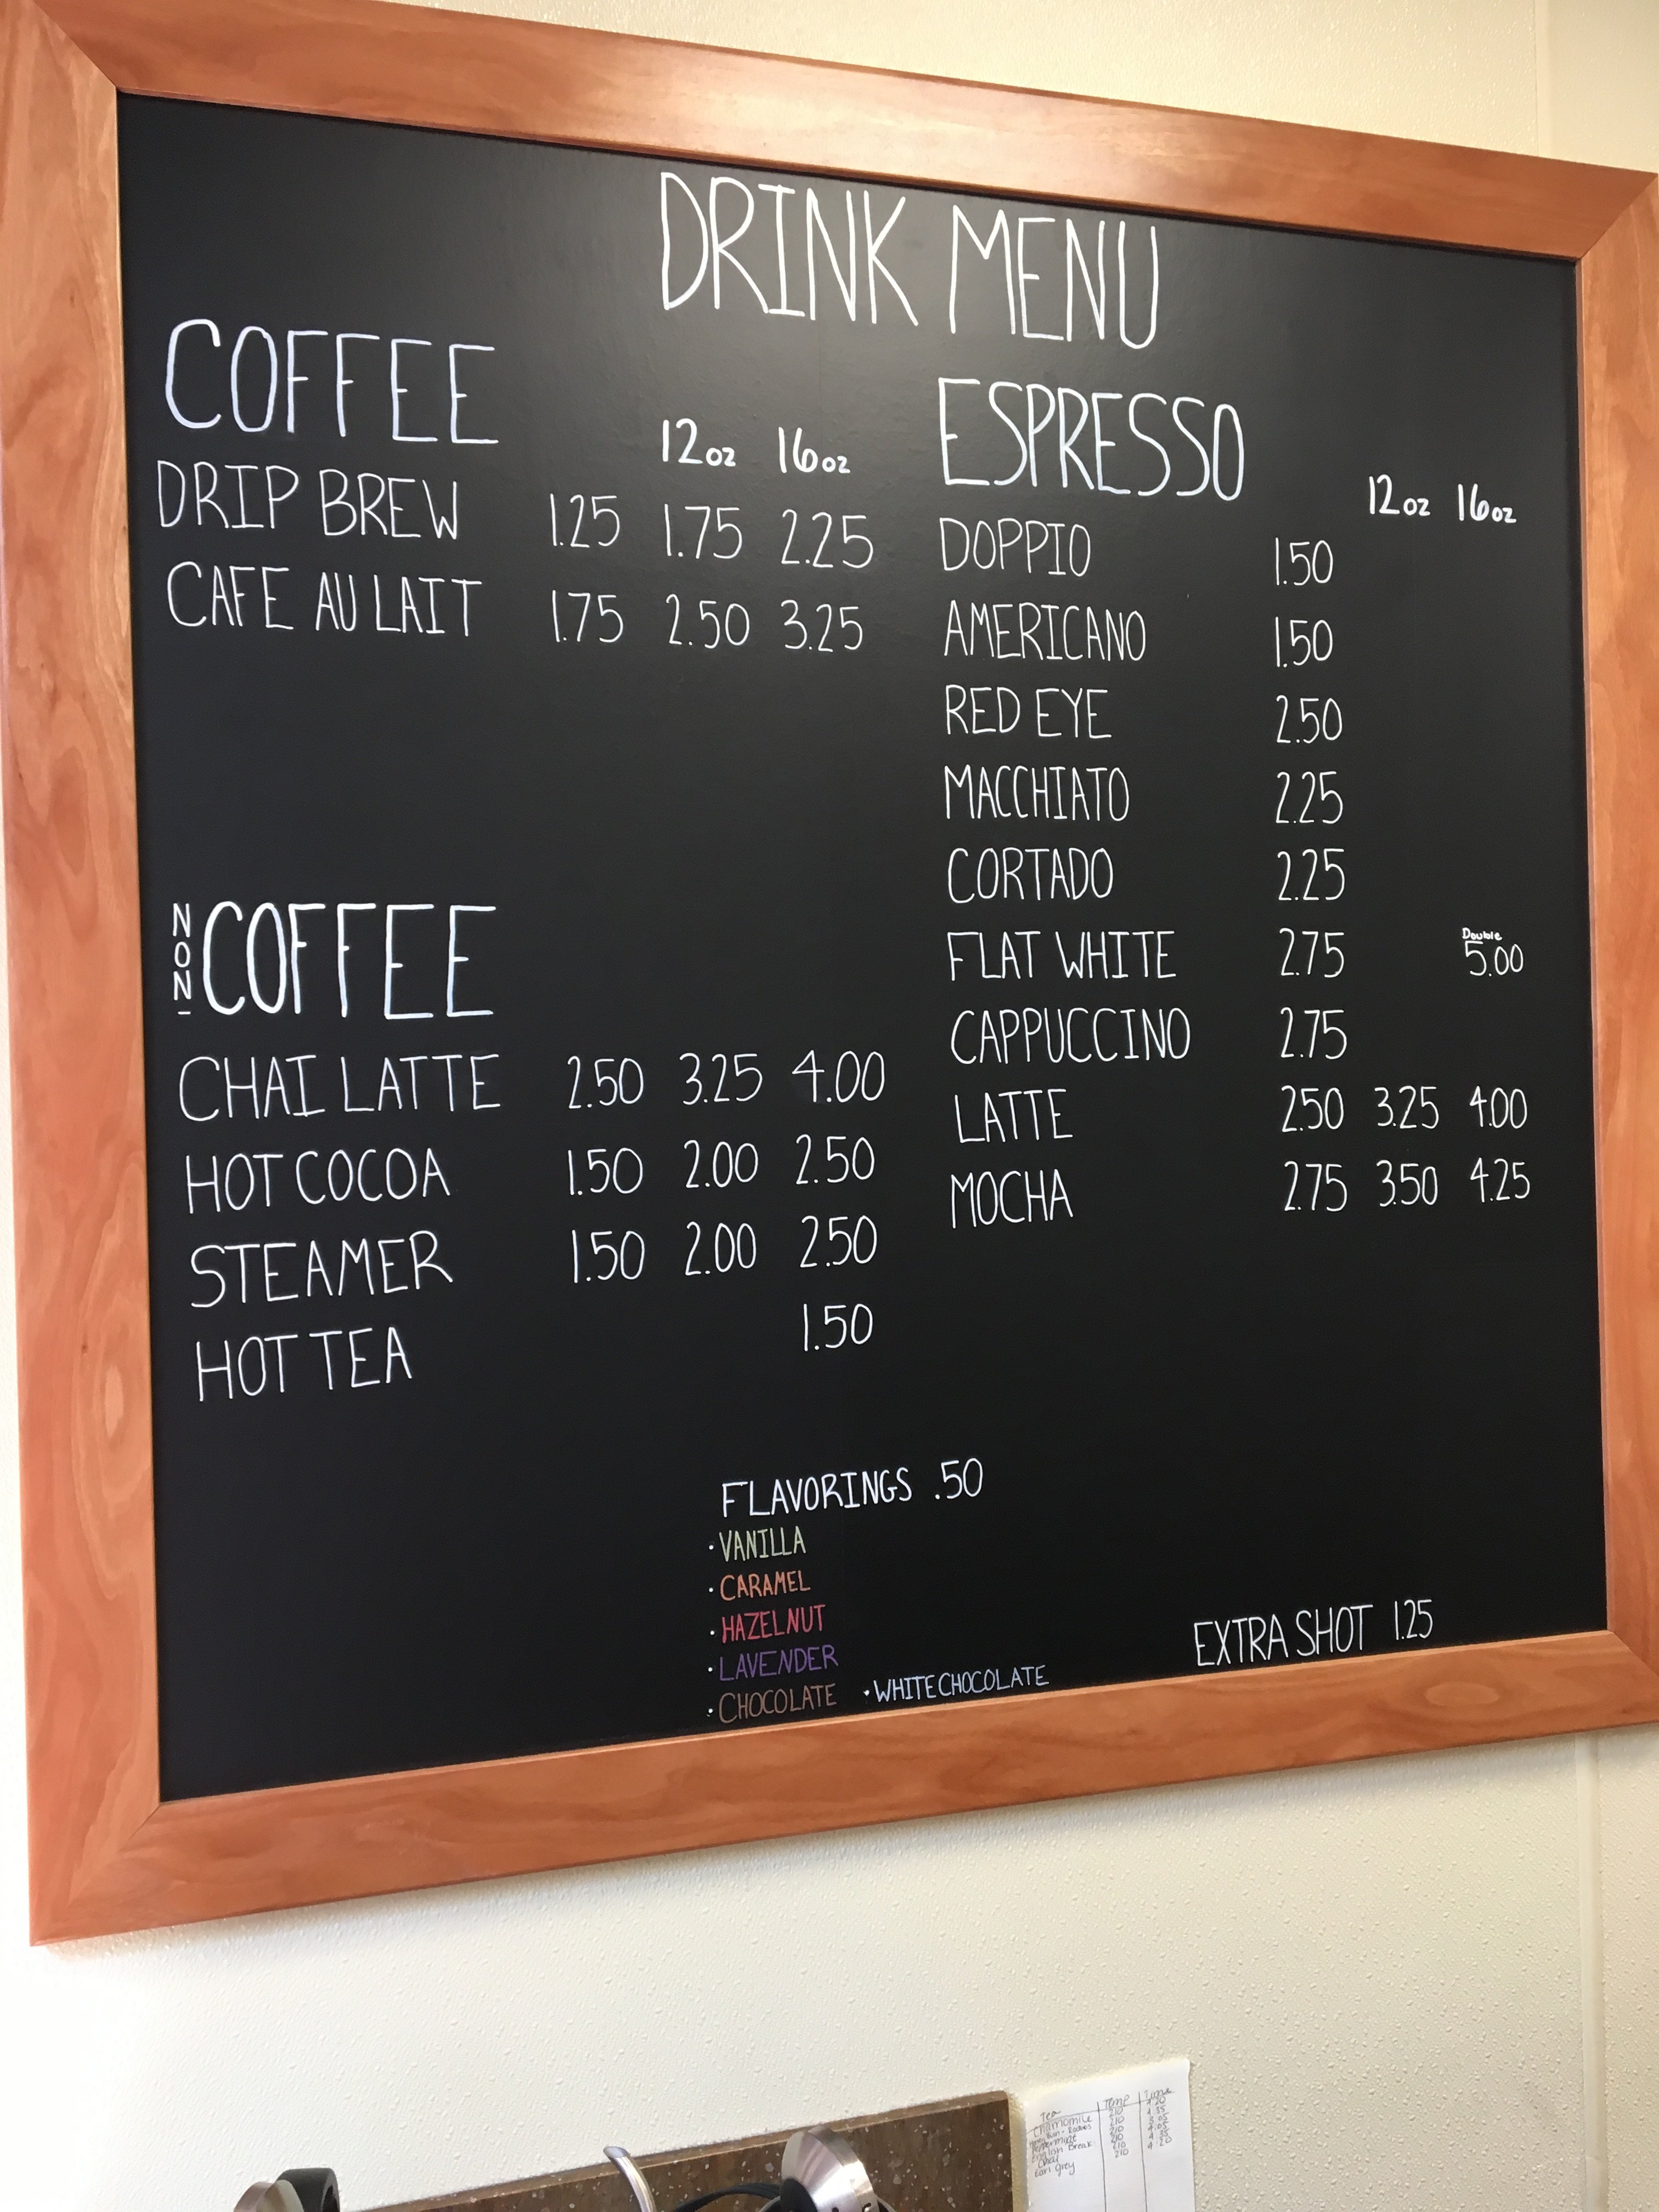 DRINK MENU
COFFEE
12oz 16oz
DRIP BREW 1.25 1.75 2.25
CAFE AU LAIT 1.75 2.50 3.25
NON-COFFEE
CHAI LATTE 2.50 3.25 4.00
HOT COCOA 1.50 2.00 2.50
STEAMER 1.50 2.00 2.50
HOT TEA 1.50
ESPRESSO
12oz 16oz
DOPPIO 1.50
AMERICANO 1.50
RED EYE 2.50
MACCHIATO 2.25
CORTADO 2.25
FLAT WHITE 2.75 Double 5.00
CAPPUCCINO 2.75
LATTE 2.50 3.25 4.00
MOCHA 2.75 3.50 4.25
FLAVORINGS .50
·VANILLA
·CARAMEL
·HAZELNUT
·LAVENDER
·CHOCOLATE ·WHITE CHOCOLATE
EXTRA SHOT 1.25
Tea Temp Time
Chamomile 210
English Break
Chai
Earl Grey